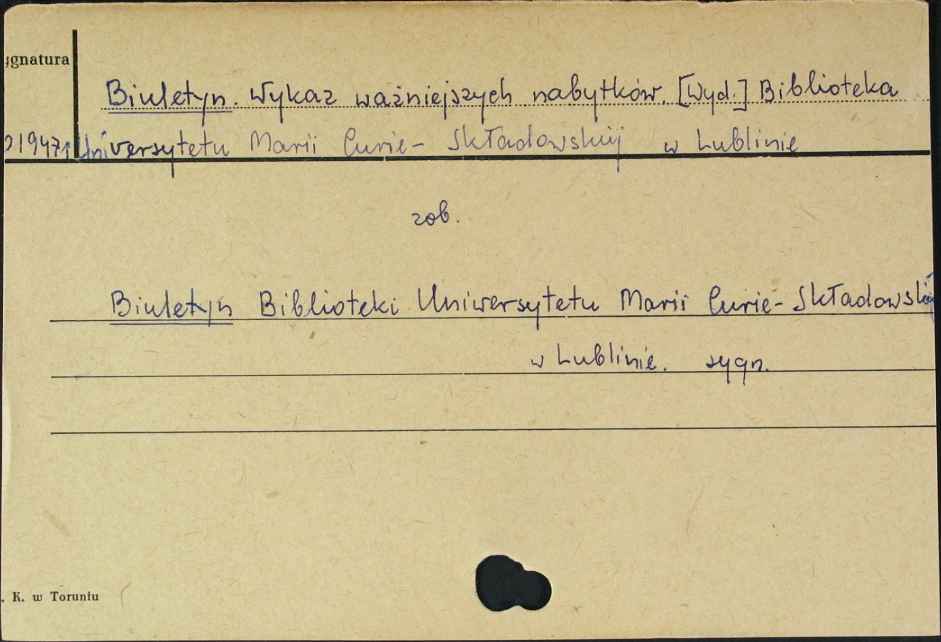 ygnatura
Biuletyn. Wykaz ważniejszych nabytków. [Wyd.] Biblioteka
Uniwersytetu Marii Curie-Skłodowskiej w Lublinie
zob.
Biuletyn Biblioteki Uniwersytetu Marii Curie-Skłodowskiej
w Lublinie. sygn.
. K. w Toruniu